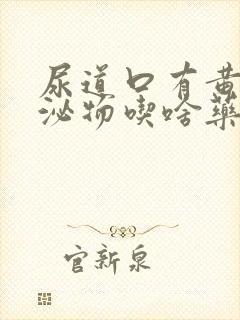 尿道口有黄
泌物喫啥藥
官新泉